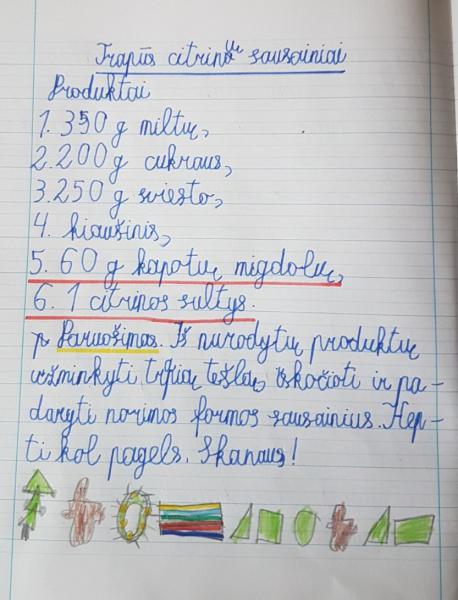 Trapūs citrinų sausainiai
Produktai
1. 350 g miltų,
2. 200 g cukraus,
3. 250 g sviesto,
4. kiaušinis,
5. 60 g kapotų migdolų,
6. 1 citrinos sultys.
Paruošimas. Iš nurodytų produktų
užminkyti trapią tešlą, iškočioti ir pa-
daryti norimos formos sausainius. Kep-
ti kol pagels. Skanaus!